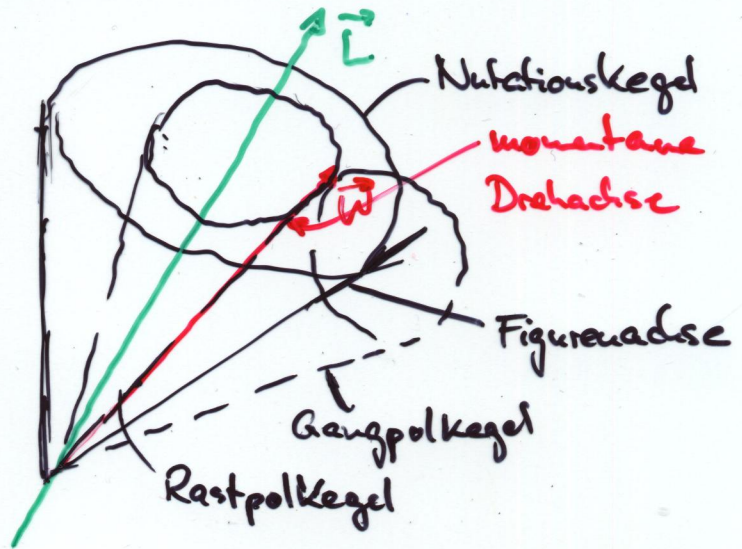 L
Nutationskegel
momentane
Drehachse
ω
Figurenachse
Gangpolkegel
Rastpolkegel